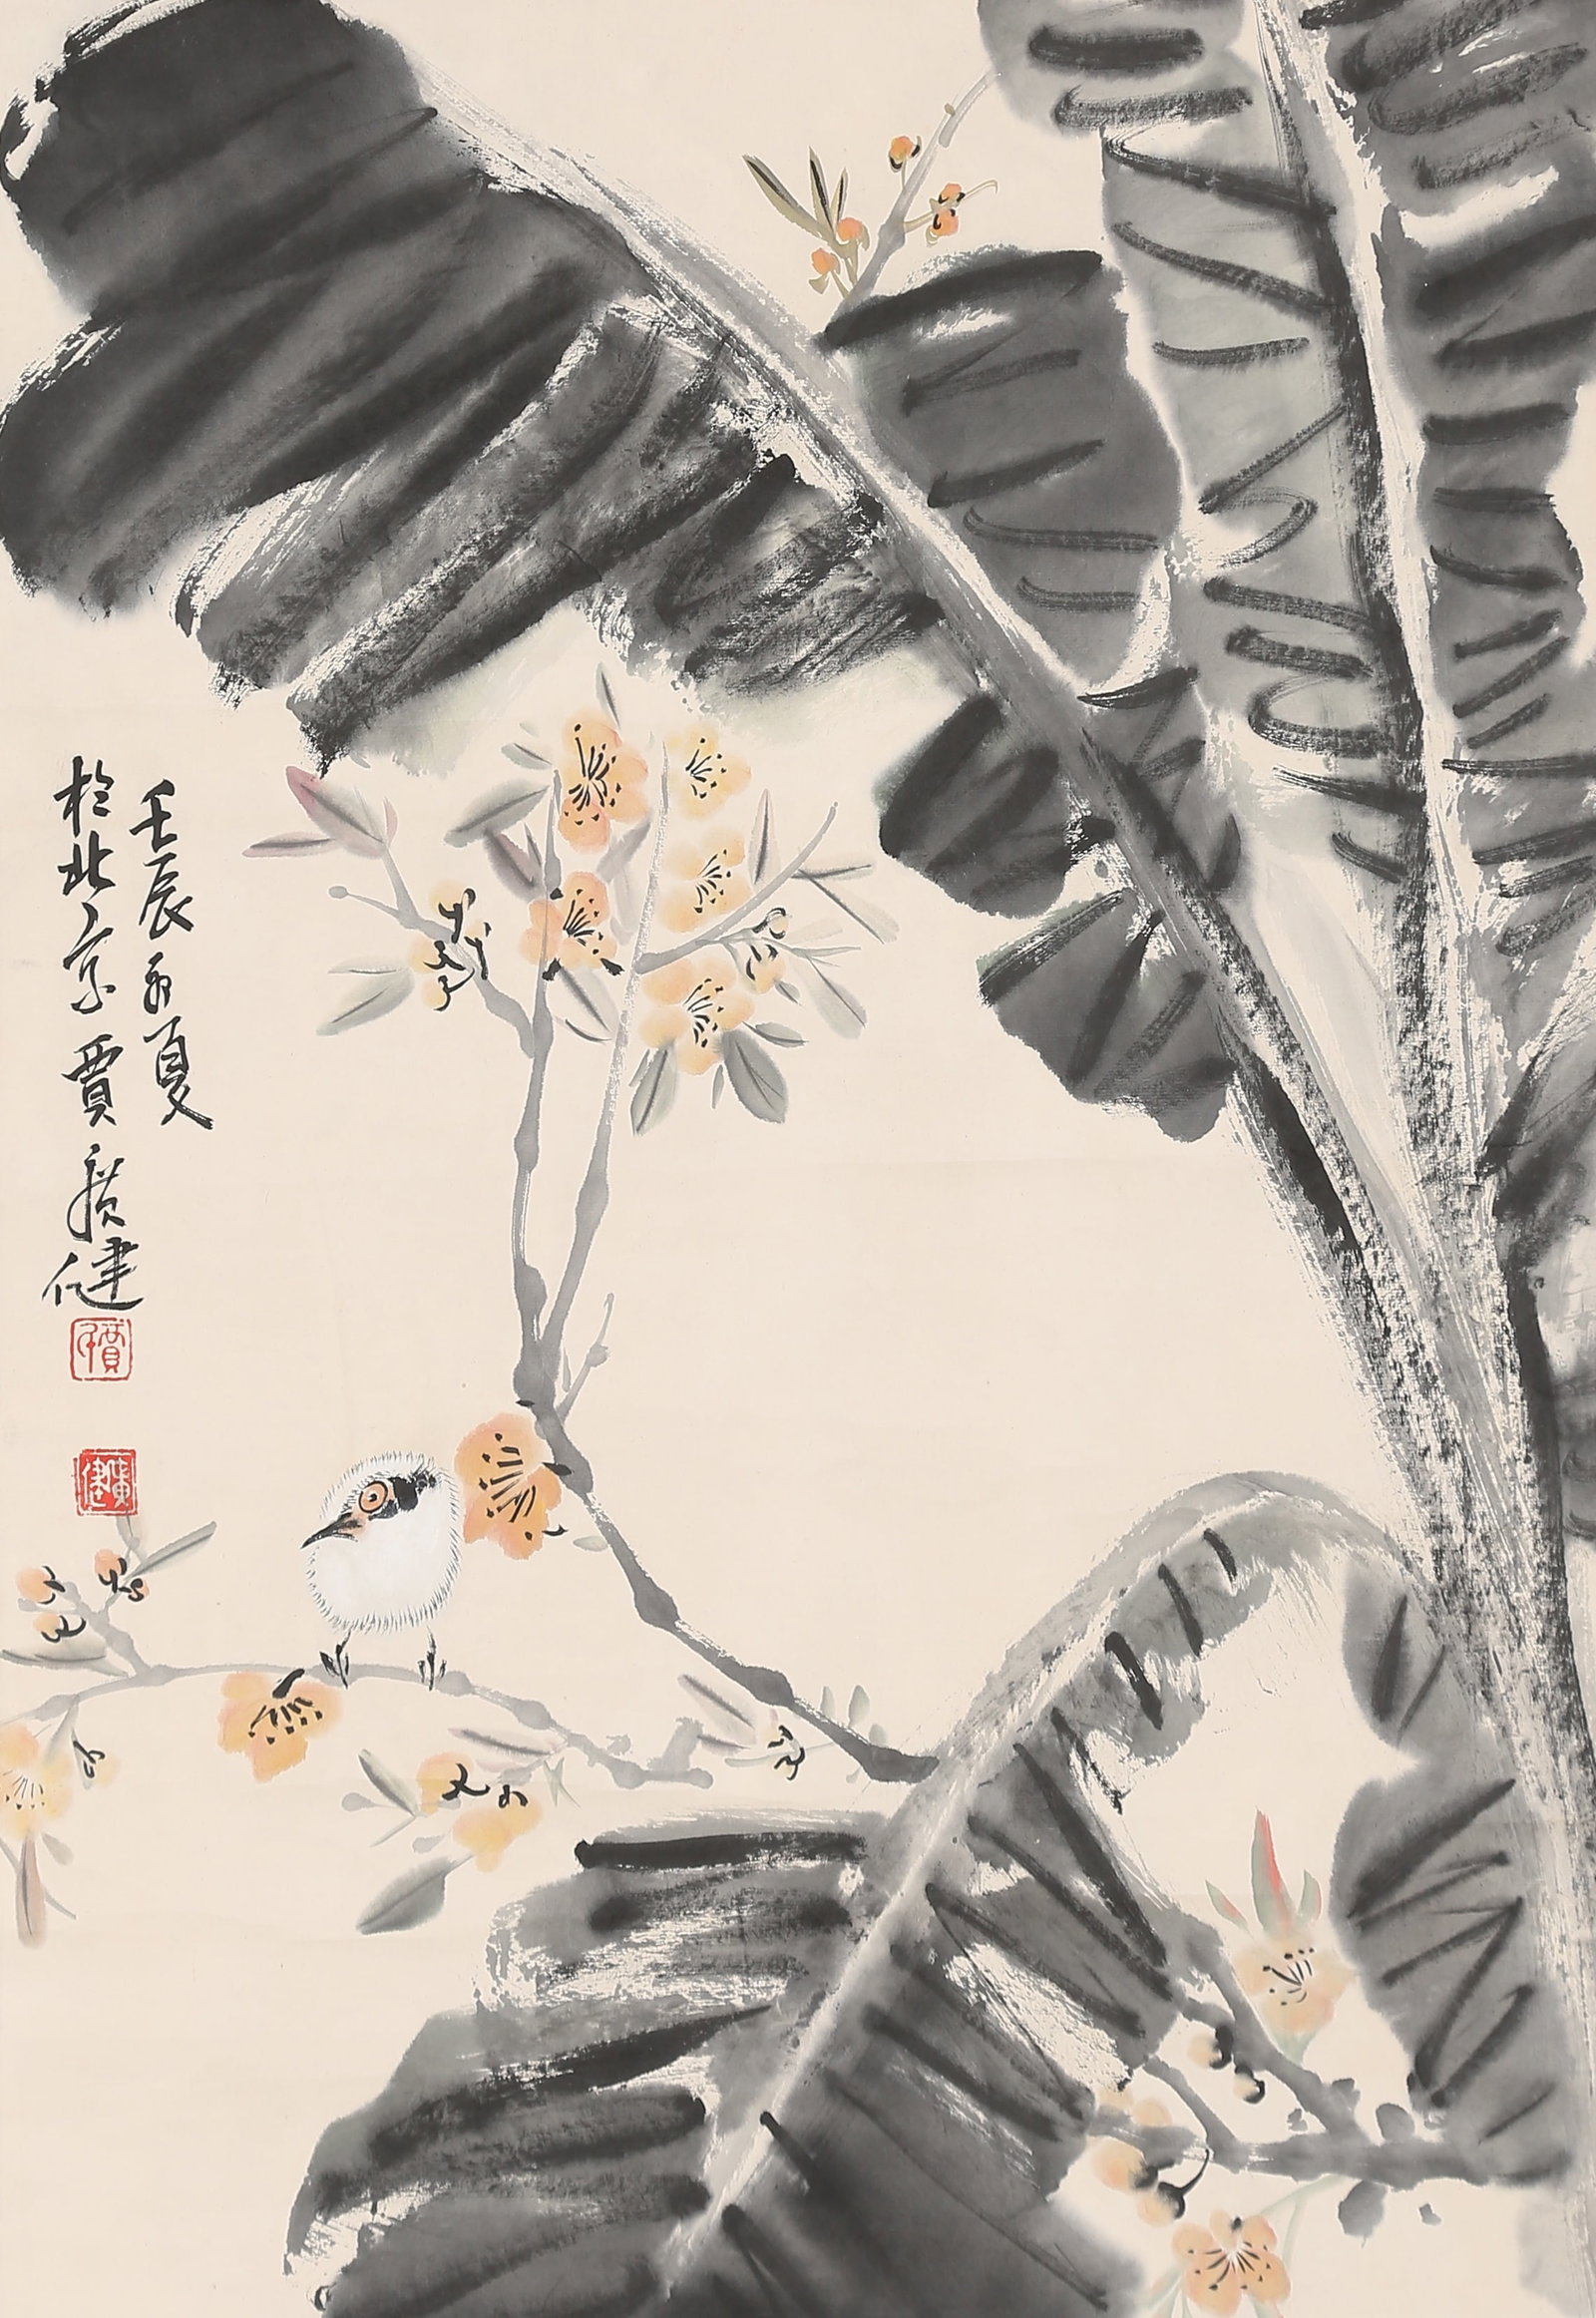 壬辰夏
於北京賈廣健
賈
廣健